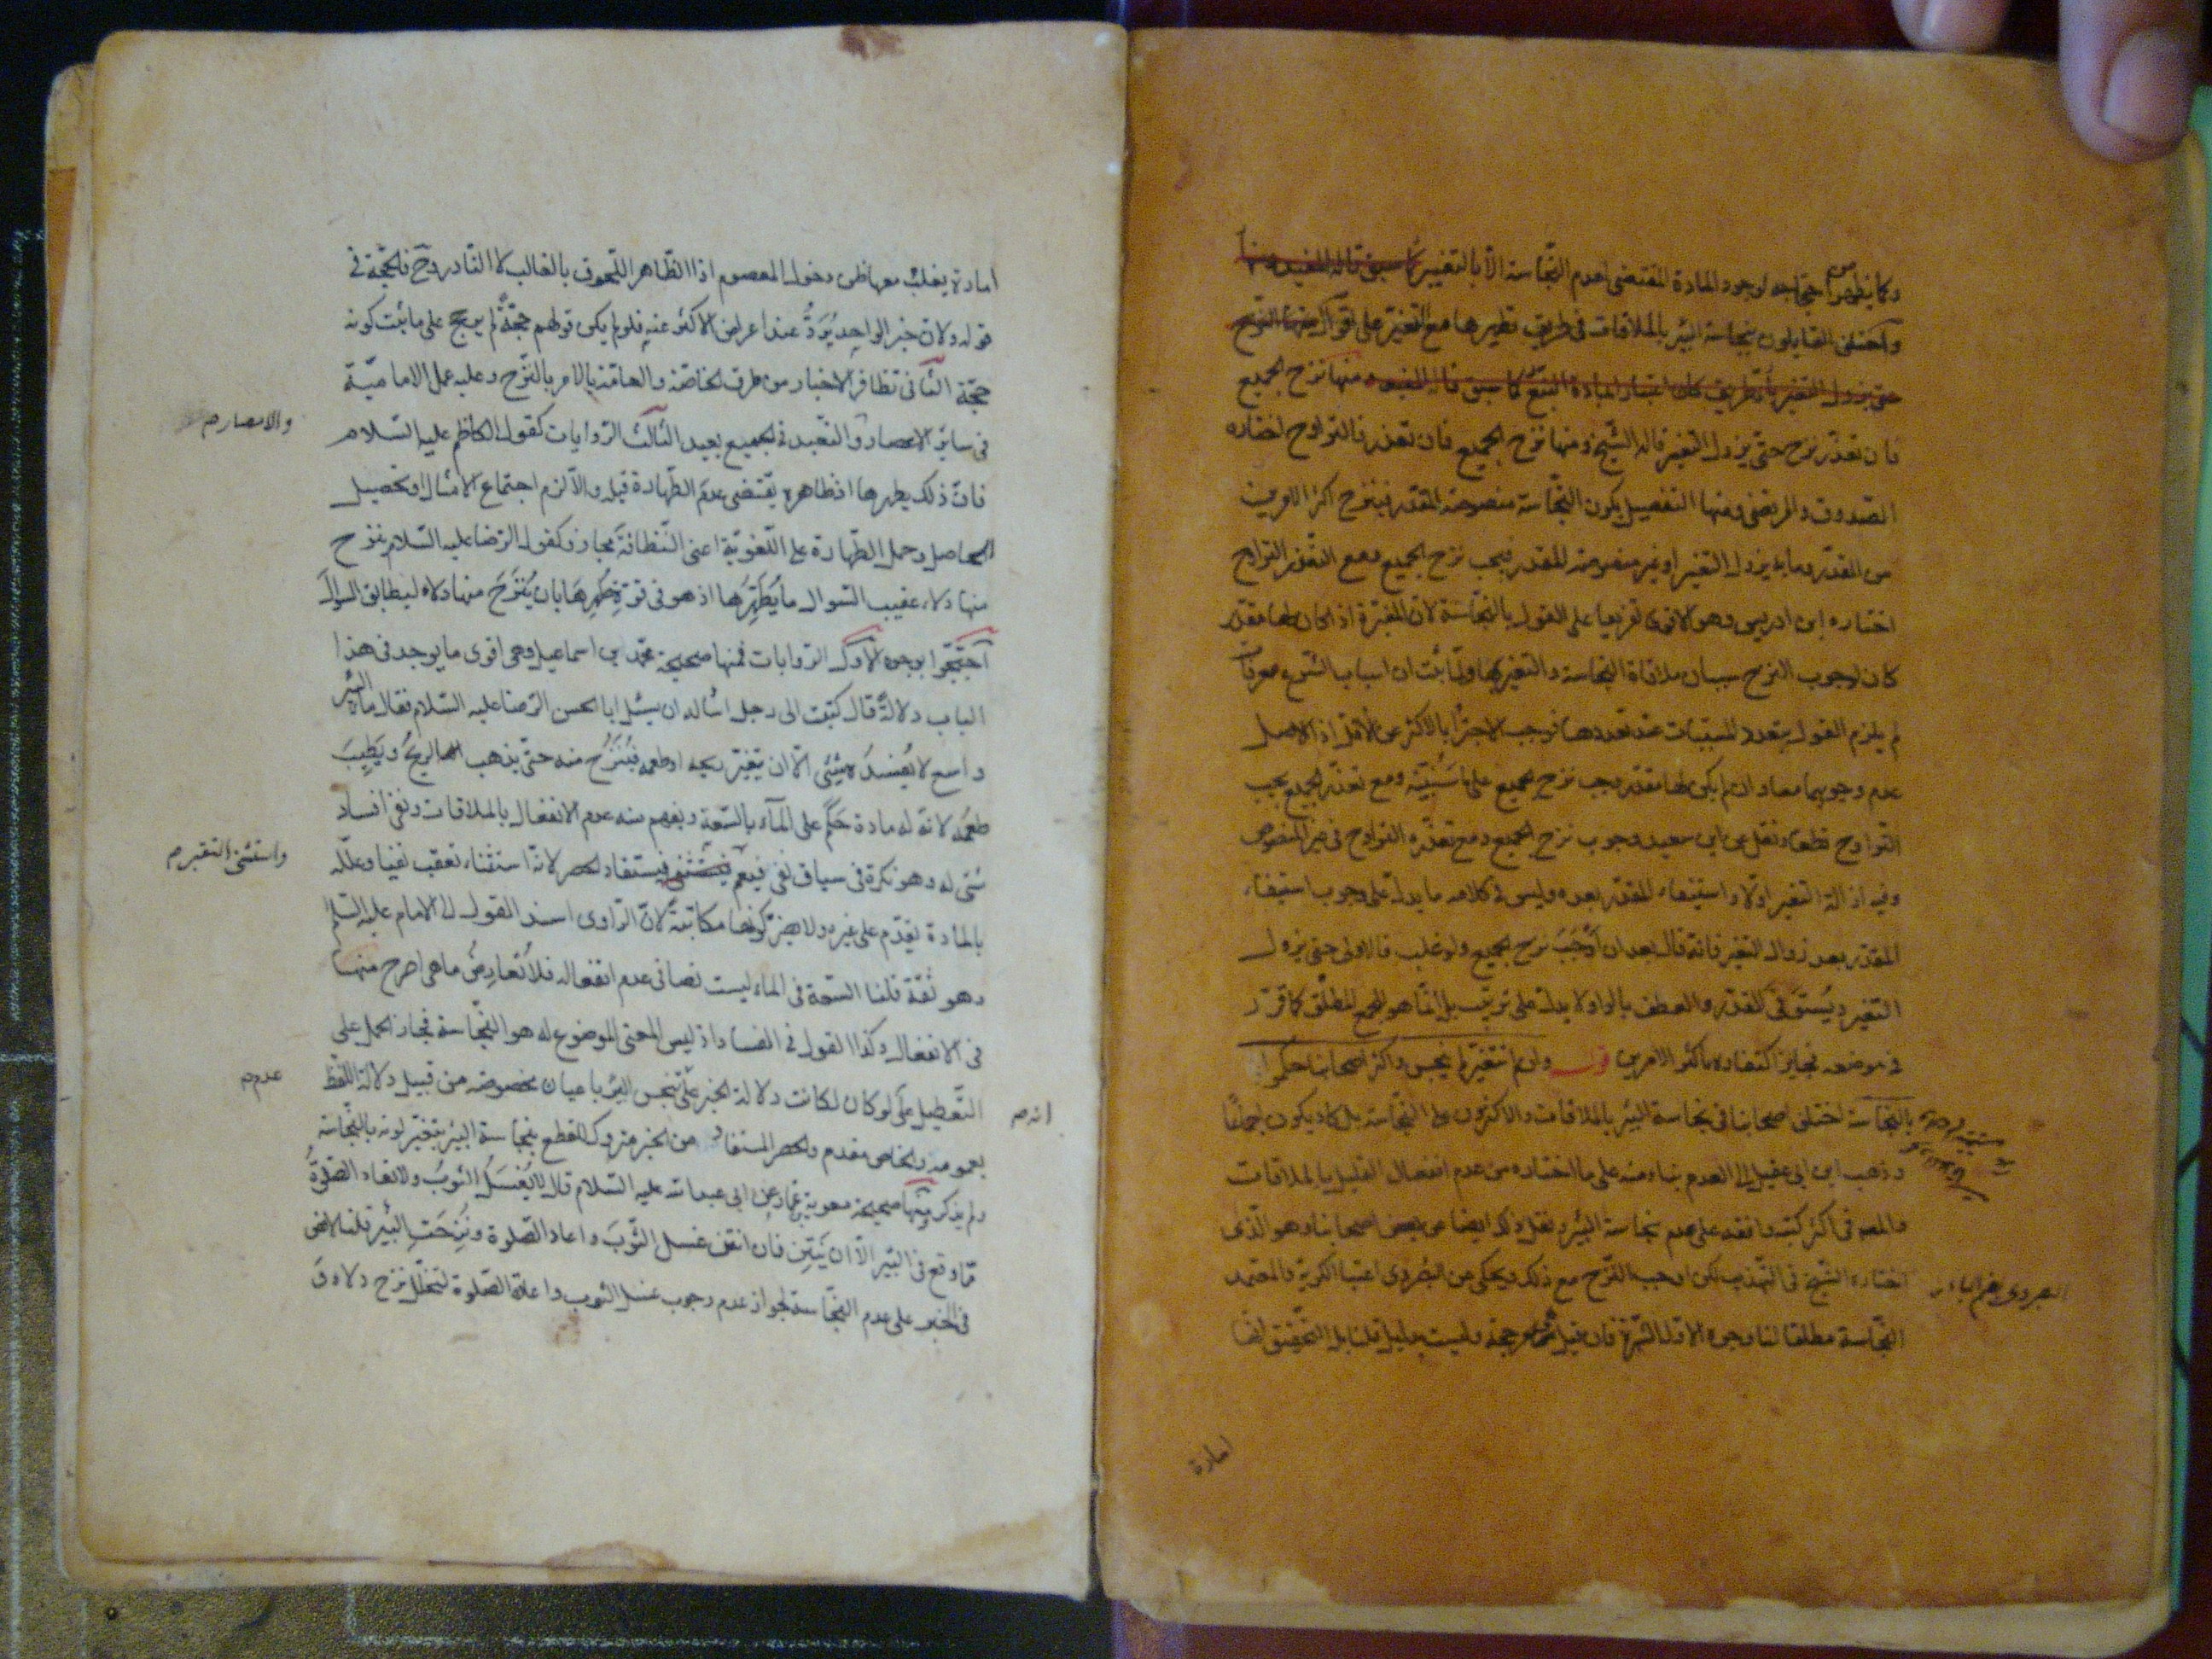 وكما يظهر من احتجاجه لوجود المادة المقتضى لعدم النجاسة الا بالتغيير كما سبق قاله المفيد ومنها
واختلف القايلون بنجاسة البئر بالملاقات فى طريق تطهيرها مع التغير على اقوال منها النزح
حتى يزول التغير كما سبق قاله المفيد ومنها نزح الجميع
فان تعذر نزح حتى يزول التغير قاله الشيخ ومنها نزح الجميع فان تعذر فالتراوح اختاره
الصدوق والمرتضى ومنها التفصيل بكون النجاسة منصوصة المقدر فينزح اكثر الامرين
من المقدر وما به يزول التغير او غير منصوصة المقدر فيجب نزح الجميع ومع التعذر التراوح
اختاره ابن ادريس وهو الاقوى تفريعا على القول بالنجاسة لان المغيرة اذا كان لها مقدر
كان لوجوب النزح سببان ملاقاة النجاسة والتغير بها ولما ثبت ان اسباب الشرع معرفات
لم يلزم القول بتعدد المسببات عند تعددها فوجب الاجتزا بالاكثر عن الاقل اذ الاصل
عدم وجوبهما معا وان لم يكن لها مقدر وجب نزح الجميع على ما سنبينه ومع تعذر الجميع يجب
التراوح قطعا ونقل عن ابن سعيد وجوب نزح الجميع ومع تعذره التراوح فى غير المنصوص
وفيه ازالة التغير اولا واستيفاء المقدر بعده وليس فى كلامه ما يدل على وجوب استيفاء
المقدر بعد زوال التغير فانه قال بعد ان اوجب نزح الجميع ولو غلب فالاولى حتى يزول
التغير ويستوفى المقدر والعطف بالواو لا يدل على ترتيب بل انما هو للجمع المطلق كما قرر
فى موضعه فجايز اكتفاؤه باكثر الامرين قوله وان لم تتغير لم ينجس واكثر اصحابنا حكموا
بالنجاسة اختلف اصحابنا فى نجاسة البئر بالملاقات والاكثرون على النجاسة بل كاد يكون اجماعا
وذهب ابن ابى عقيل الى العدم بناء منه على ما اختاره من عدم انفعال القليل بالملاقات
والمصه فى اكثر كتبه وافقه على عدم نجاسة البئر ونقل ذلك ايضا عن بعض اصحابنا وهو الذى
اختاره الشيخ فى التهذيب لكن اوجب النزح مع ذلك ويحكى عن البصروى اعتبار الكرية والمعتمد
البصروى بضم الباء
النجاسة مطلقا لنا وجوه الاول الشهرة فان قيل الشهرة حجة وليست بدليل قلنا بل التحقيق انها
امارة
امارة يغلب معها ظن دخول المعصوم اذ الظاهر اللحوق بالغالب لا النادر وح فالحجة فى
قوله ولان خبر الواحد يرد عند اعراض الاكثر عنه فلو لم يكن قولهم حجة لم يرجح على ما ثبت كونه
حجة الثانى تظافر الاخبار من طرق الخاصة والعامة بالامر بالنزح وعليه عمل الامامية
فى سائر الاعصار والتعبد فى الجميع بعيد الثالث الروايات كقول الكاظم عليه السلام
والامصار صح
فان ذلك يطهرها اذ ظاهره يقتضى عدم الطهارة قبله والا لزم اجتماع الامثال او تحصيل
الحاصل وحمل الطهارة على اللغوية اعنى النظافة مجاز وكقول الرضا عليه السلام ينزح
منها دلاء عقيب السوال ما يطهرها اذ هو فى قوة طهرها بان ينزح منها دلاء ليطابق السوال
احتجوا بوجوه الاول الروايات فمنها صحيحة محمد بن اسماعيل وهى اقوى ما يوجد فى هذا
الباب دلالة قال كتبت الى رجل اسأله ان يسئل ابا الحسن الرضا عليه السلام فقال ماء البئر
واسع لا يفسده شئى الا ان يتغير ريحه او طعمه فينزح منه حتى يذهب الريح ويطيب
طعمه لانه له مادة حكم على الماء بالسعة ويفهم منه عدم الانفعال بالملاقات ونفى افساد
شئى له وهو نكرة فى سياق نفى فيعم فيستفاد الحصر لانه استثناء تعقب نفيا وعلله
واستثنى التغير صح
بالمادة يقدم على غيره ولا يضر كونها مكاتبة لان الراوى اسند القول الى الامام عليه السلام
وهو ثقة قلنا السعة فى الماء ليست نصا فى عدم انفعاله فلا تعارض ما هى اصرح منها
فى الانفعال وكذا القول فى الفساد اذ ليس المعنى الموضوع له هو النجاسة فجاز الحمل على
التعطيل على لو كان لكانت دلالة الخبر على تنجس البئر باعيان مخصوصة من قبيل دلالة اللفظ
عدم صح
بعمومه والخاص مقدم والحصر المستفاد من الخبر متروك للقطع بنجاسة البئر بتغير لونه بالنجاسة
انه صح
ولم يذكر ومنها صحيحة معوية بن عمار عن ابى عبد الله عليه السلام قال لا يغسل الثوب ولا تعاد الصلوة
مما وقع فى البئر الا ان ينتن فان انتن غسل الثوب واعاد الصلوة ونزحت البئر قلنا لا نص
فى الخبر على عدم النجاسة لجواز عدم وجوب غسل الثوب واعادة الصلوة لتخلل نزح دلاء